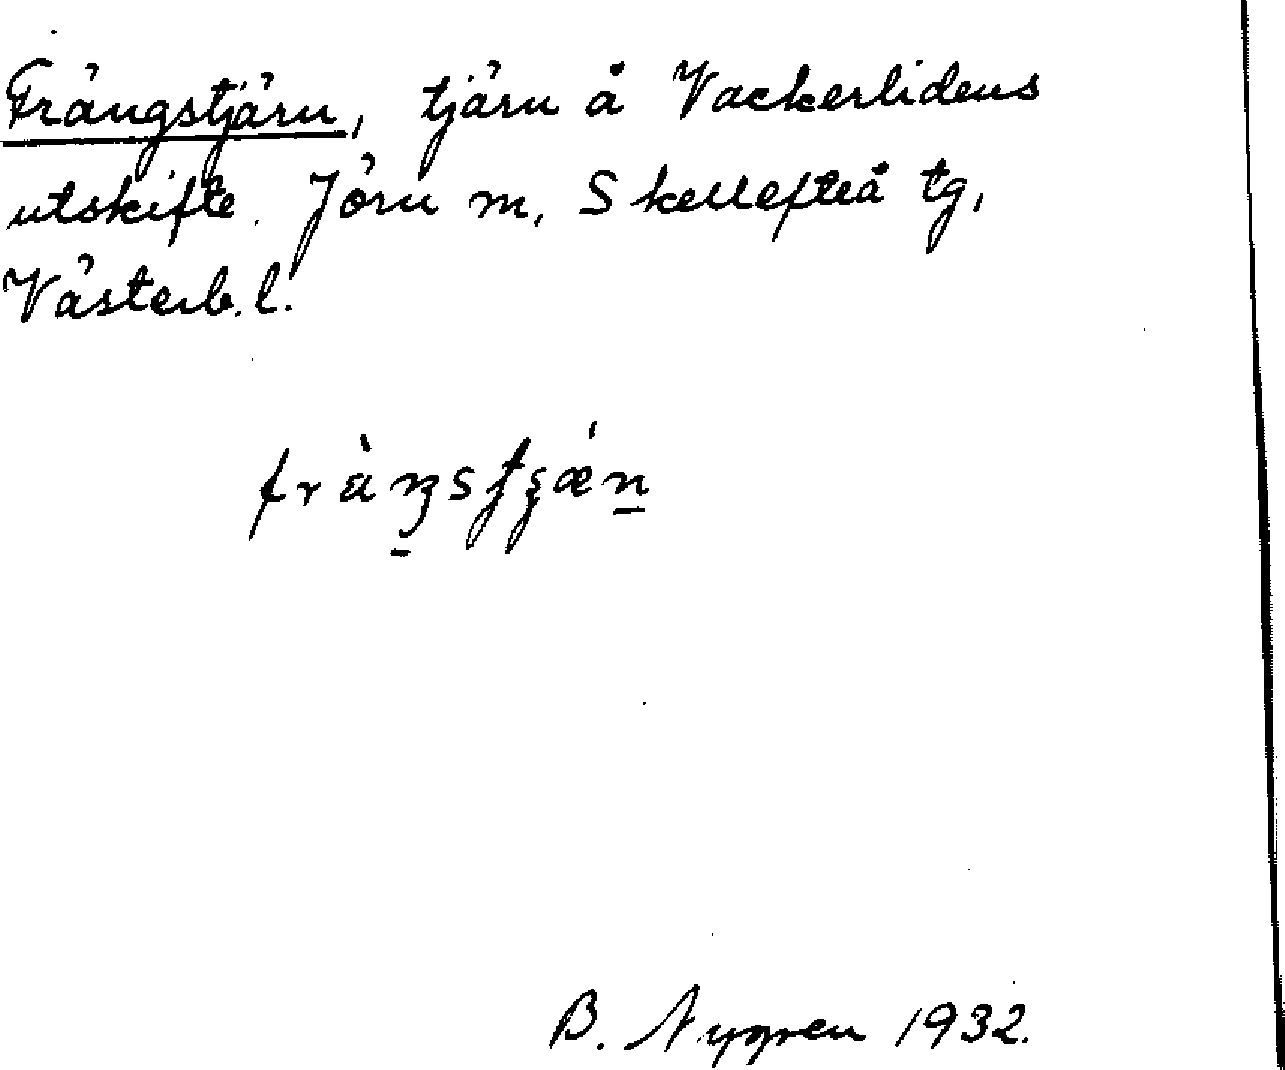 Frängstjärn, tjärn å Vackerlidens
utskifte. Jörn m, Skellefteå tg,
Västerb. l.
B. Nygren 1932.